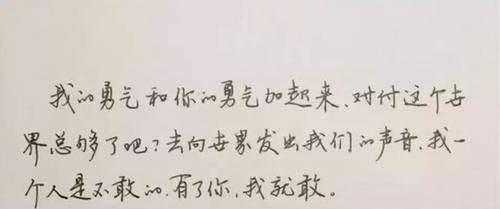 我的勇气和你的勇气加起来、对付这个世
界总够了吧?去向世界发出我们的声音、我一
个人是不敢的、有了你、我就敢。